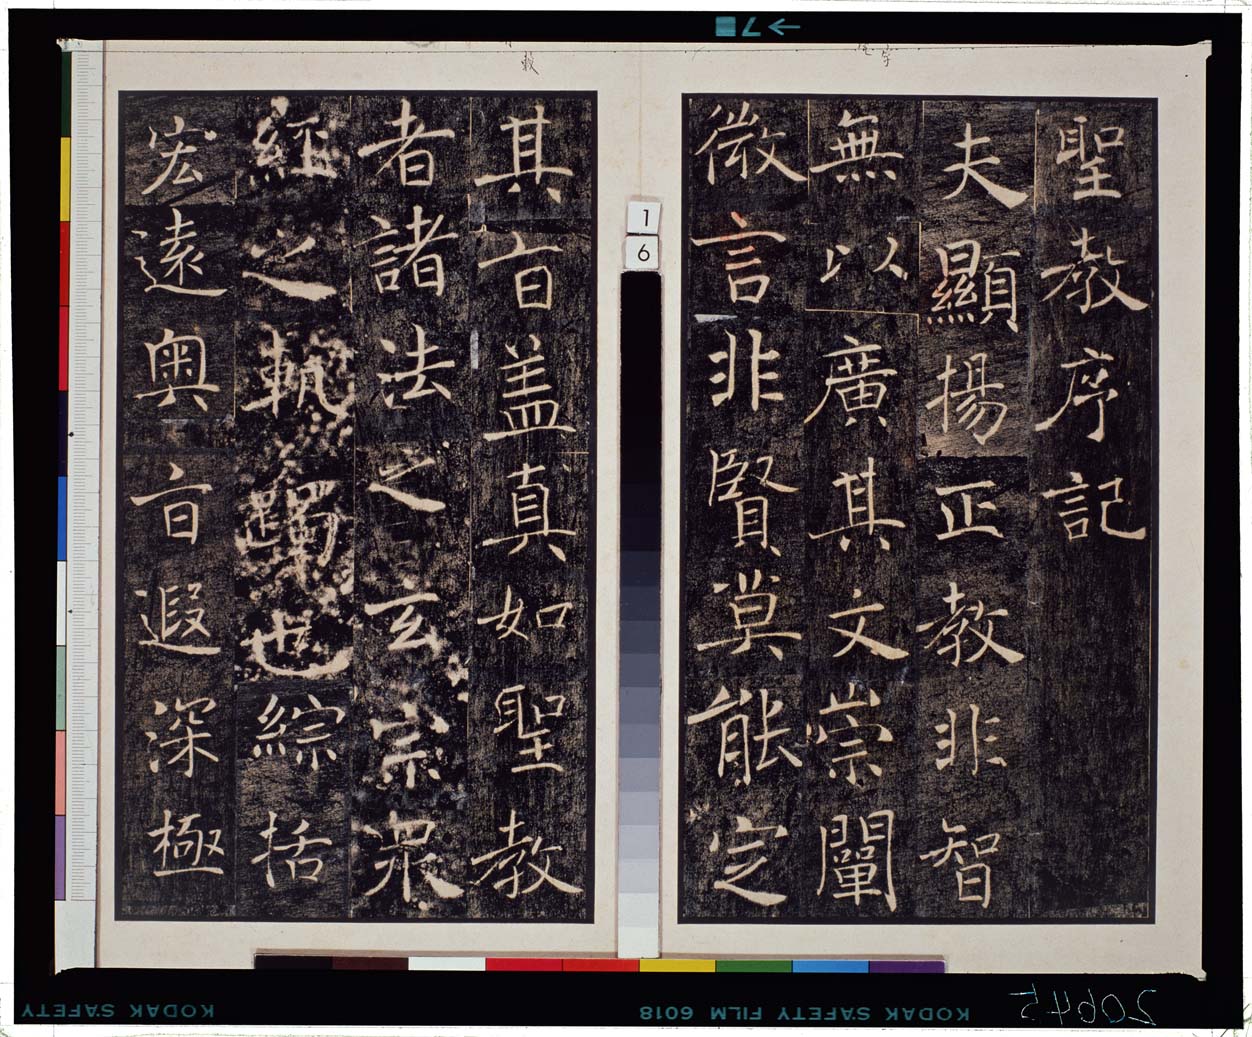 聖教序記
夫顯揚正教非智
無以廣其文崇闡
微言非賢莫能定
其旨盖真如聖教
者諸法之玄宗衆
經之軌躅也綜括
宏遠奥旨遐深極
1
6
7
KODAK SAFETY FILM 6018
KODAK SAFETY
20645